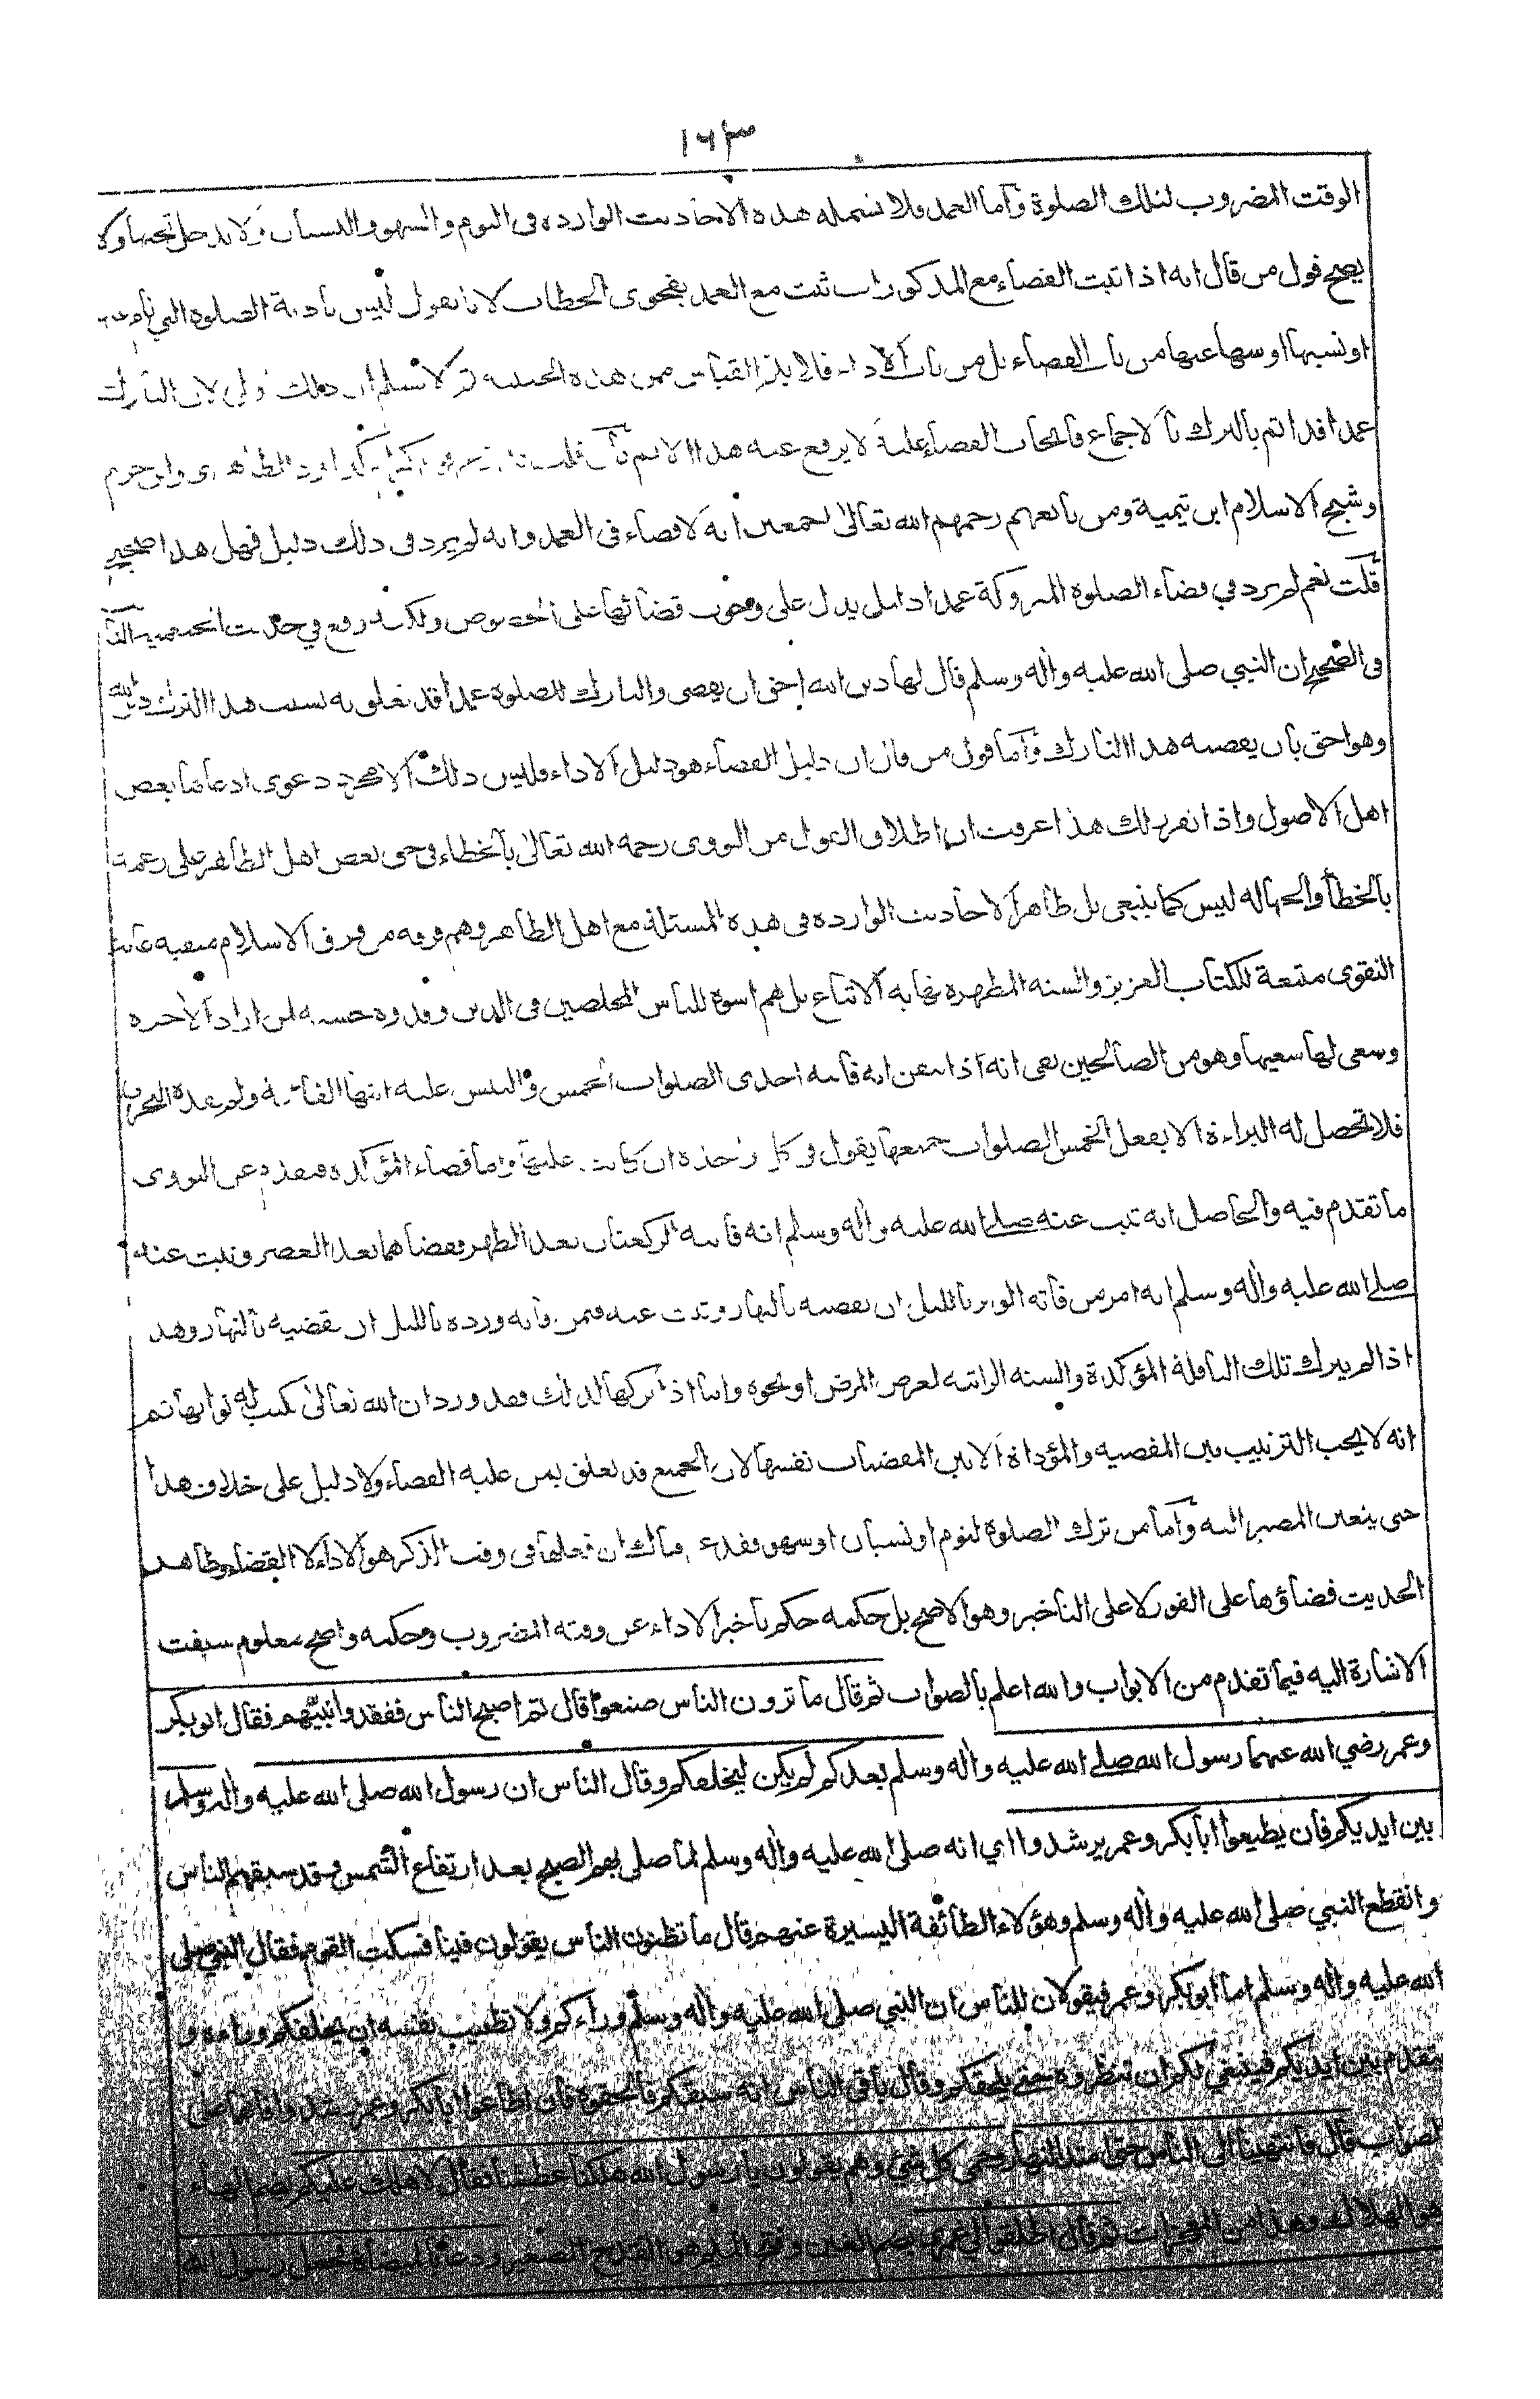 ١٦٣
الوقت المضروب لتلك الصلوة وأما العمد فلا تشمله هذه الاحاديث الواردة في النوم والسهو والنسيان ولا يدخل تحتها ولا
يصح قول من قال انه اذا ثبت القضاء مع المذكورات ثبت مع العمد بفحوى الخطاب لانا نقول ليس تأدية الصلوة التي نام عنها
او نسيها او سها عنها من باب القضاء بل من باب الاداء فلا يلزم القياس من هذه الحيثية ثم لا نسلم ان ذلك اولى لان التارك
عمدا قد اثم بالترك بالاجماع فايجاب القضاء عليه لا يرفع عنه هذا الاثم فان قلت داود الظاهري وابن حزم
وشيخ الاسلام ابن تيمية ومن تابعهم رحمهم الله تعالى اجمعين انه لا قضاء في العمد وانه لم يرد في ذلك دليل فهل هذا صحيح
قلت نعم لم يرد في قضاء الصلوة المتروكة عمدا دليل يدل على وجوب قضائها على الخصوص ولكنه وقع في حديث الخثعمية الثابت
في الصحيح ان النبي صلى الله عليه واله وسلم قال لها دين الله احق ان يقضى والتارك للصلوة عمدا قد تعلق به بسبب هذا الترك دين الله
وهو احق بان يقضيه هذا التارك وأما قول من قال ان دليل القضاء هو دليل الاداء فليس ذلك الا مجرد دعوى ادعاها بعض
اهل الاصول واذا تقرر لك هذا عرفت ان اطلاق القول من النووي رحمه الله تعالى بالخطاء في حق بعض اهل الظاهر على زعمه
بالخطأ والجهالة ليس كما ينبغي بل ظاهر الاحاديث الواردة في هذه المسئلة مع اهل الظاهر وهم فرقة من فرق الاسلام متقية غاية
التقوى متبعة للكتاب العزيز والسنة المطهرة نهاية الاتباع بل هم اسوة للناس المخلصين في الدين وقدوة حسنة لمن اراد الاخرة
وسعى لها سعيها وهو من الصالحين بقي انه اذا تيقن انه فاته احدى الصلوات الخمس والتبس عليه ايتها الفائتة ولم يفده التحري
فلا تحصل له البراءة الا بفعل الخمس الصلوات جميعها يقول في كل واحدة ان كانت عليّ وأما قضاء المؤكدة فتقدم عن النووي
ما تقدم فيه والحاصل انه ثبت عنه صلى الله عليه واله وسلم انه فاتته الركعتان بعد الظهر فقضاهما بعد العصر وثبت عنه
صلى الله عليه واله وسلم انه امر من فاته الوتر بالليل ان يقضيه بالنهار وثبت عنه فيمن فاته ورده بالليل ان يقضيه بالنهار وهذا
اذا لم يترك تلك النافلة المؤكدة والسنة الراتبة لعرض المرض او نحوه واما اذا تركها لذلك فقد ورد ان الله تعالى يكتب له ثوابها ثم
انه لا يجب الترتيب بين المقضية والمؤداة الا بين المقضيات نفسها لان الجميع قد تعلق بمن عليه القضاء ولا دليل على خلاف هذا
حتى يتعين المصير اليه وأما من ترك الصلوة لنوم او نسيان او سهو فقد عرفناك ان فعلها في وقت الذكر هو الاداء لا القضاء وظاهر
الحديث قضاؤها على الفور لا على التاخير وهو الاصح بل حكمه حكم تأخير الاداء عن وقته المضروب وحكمه واضح معلوم سبقت
الاشارة اليه فيما تقدم من الابواب والله اعلم بالصواب ثم قال ما ترون الناس صنعوا قال ثم اصبح الناس ففقدوا نبيهم فقال ابو بكر
وعمر رضي الله عنهما رسول الله صلى الله عليه واله وسلم بعدكم لم يكن ليخلفكم وقال الناس ان رسول الله صلى الله عليه واله وسلم
بين ايديكم فان يطيعوا ابا بكر وعمر يرشدوا اي انه صلى الله عليه واله وسلم لما صلى بهم الصبح بعد ارتفاع الشمس وقد سبقهم الناس
وانقطع النبي صلى الله عليه واله وسلم وهؤلاء الطائفة اليسيرة عنهم قال ما تظنون الناس يقولون فينا فسكت القوم فقال النبي صلى
الله عليه واله وسلم اما ابو بكر وعمر فيقولان للناس ان النبي صلى الله عليه واله وسلم وراءكم ولا تطيب نفسه ان يخلفكم وراءه و
يتقدم بين ايديكم فينبغي لكم ان تنظروه حتى يلحقكم وقال باقي الناس انه سبقكم فالحقوه فان اطاعوا ابا بكر وعمر رشدوا فانهما على
الصواب قال فانتهينا الى الناس حتى امتد النهار وحمي كل شيء وهم يقولون يا رسول الله هلكنا عطشنا فقال لا هلك عليكم بضم الهاء
هو الهلاك وهذا من المعجزات ثم قال اطلقوا لي غمري بضم الغين وفتح الميم هو القدح الصغير ودعا بالميضأة فجعل رسول الله